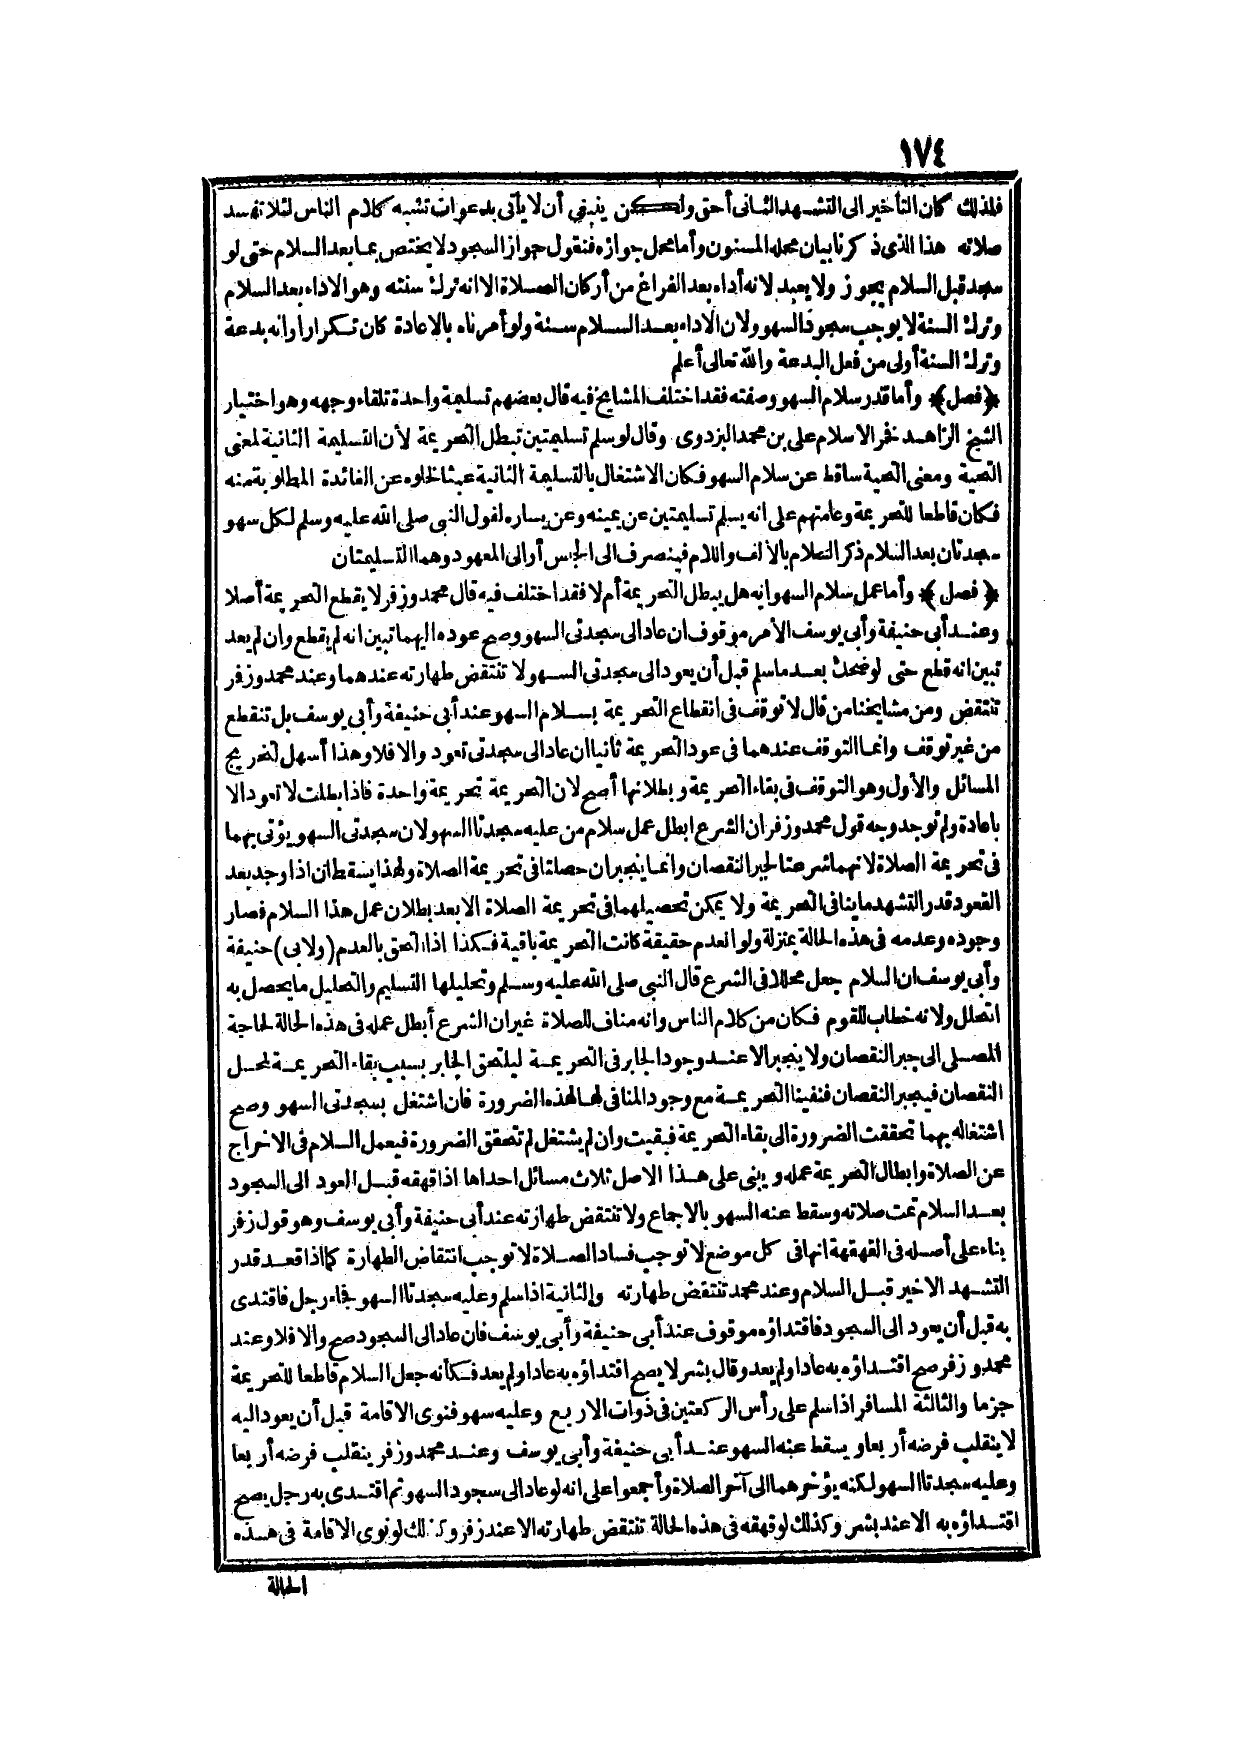 ١٧٤
فلذلك كان التأخير الى التشهد الثانى أحق ولكن ينبغي أن لا يأتى بدعوات تشبه كلام الناس لئلا تفسد
صلاته هذا الذى ذكرنا بيان محله المسنون وأما محل جوازه فنقول جواز السجود لا يختص بما بعد السلام حتى لو
سجد قبل السلام يجوز ولا يعيد لانه أداء بعد الفراغ من أركان الصلاة الا انه ترك سنته وهو الاداء بعد السلام
وترك السنة لا يوجب سجود السهو ولان الاداء بعد السلام سنة ولو أمرناه بالاعادة كان تكرارا وانه بدعة
وترك السنة أولى من فعل البدعة والله تعالى أعلم
﴿فصل﴾ وأما قدر سلام السهو وصفته فقد اختلف المشايخ فيه قال بعضهم تسليمة واحدة تلقاء وجهه وهو اختيار
الشيخ الزاهد فخر الاسلام على بن محمد البزدوى وقال لو سلم تسليمتين تبطل التحريمة لأن التسليمة الثانية لمعنى
التحية ومعنى التحية ساقط عن سلام السهو فكان الاشتغال بالتسليمة الثانية عبثا لخلوه عن الفائدة المطلوبة منه
فكان قاطعا للتحريمة وعامتهم على انه يسلم تسليمتين عن يمينه وعن يساره لقول النبى صلى الله عليه وسلم لكل سهو
سجدتان بعد السلام ذكر السلام بالألف واللام فينصرف الى الجنس أو الى المعهود وهما التسليمتان
﴿فصل﴾ وأما عمل سلام السهو انه هل يبطل التحريمة أم لا فقد اختلف فيه قال محمد وزفر لا يقطع التحريمة أصلا
وعند أبى حنيفة وأبى يوسف الأمر موقوف ان عاد الى سجدتى السهو وصح عوده اليهما تبين انه لم يقطع وان لم يعد
تبين انه قطع حتى لو ضحك بعد ما سلم قبل أن يعود الى سجدتى السهو لا تنتقض طهارته عندهما وعند محمد وزفر
تنتقض ومن مشايخنا من قال لا توقف فى انقطاع التحريمة بسلام السهو عند أبى حنيفة وأبى يوسف بل تنقطع
من غير توقف وانما التوقف عندهما فى عود التحريمة ثانيا ان عاد الى سجدتى تعود والا فلا وهذا أسهل لتخريج
المسائل والأول وهو التوقف فى بقاء التحريمة وبطلانها أصح لان التحريمة تحريمة واحدة فاذا بطلت لا تعود الا
باعادة ولم توجد وجه قول محمد وزفر ان الشرع ابطل عمل سلام من عليه سجدتا السهو لان سجدتى السهو يؤتى بهما
فى تحريمة الصلاة لانهما شرعتا لجبر النقصان وانما ينجبر ان حصلتا فى تحريمة الصلاة ولهذا يسقطان اذا وجد بعد
القعود قدر التشهد ما ينافى التحريمة ولا يمكن تحصيلهما فى تحريمة الصلاة الا بعد بطلان عمل هذا السلام فصار
وجوده وعدمه فى هذه الحالة بمنزلة ولو انعدم حقيقة كانت التحريمة باقية فكذا اذا التحق بالعدم (ولابى) حنيفة
وأبى يوسف ان السلام جعل محللا فى الشرع قال النبى صلى الله عليه وسلم وتحليلها التسليم والتحليل ما يحصل به
التحلل ولانه خطاب للقوم فكان من كلام الناس وانه مناف للصلاة غير ان الشرع أبطل عمله فى هذه الحالة لحاجة
المصلى الى جبر النقصان ولا ينجبر الا عند وجود الجابر فى التحريمة ليلتحق الجابر بسبب بقاء التحريمة لمحل
النقصان فيجبر النقصان فنفينا التحريمة مع وجود المنافى لها لهذه الضرورة فان اشتغل بسجدتى السهو وصح
اشتغاله بهما تحققت الضرورة الى بقاء التحريمة فبقيت وان لم يشتغل لم تتحقق الضرورة فيعمل السلام فى الاخراج
عن الصلاة وابطال التحريمة عمله ويبنى على هذا الاصل ثلاث مسائل احداها اذا قهقه قبل العود الى السجود
بعد السلام تمت صلاته وسقط عنه السهو بالاجماع ولا تنتقض طهارته عند أبى حنيفة وأبى يوسف وهو قول زفر
بناء على أصله فى القهقهة انها فى كل موضع لا توجب فساد الصلاة لا توجب انتقاض الطهارة كما اذا قعد قدر
التشهد الاخير قبل السلام وعند محمد تنتقض طهارته والثانية اذا سلم وعليه سجدتا السهو فجاء رجل فاقتدى
به قبل أن يعود الى السجود فاقتداؤه موقوف عند أبى حنيفة وأبى يوسف فان عاد الى السجود صح والا فلا وعند
محمد وزفر صح اقتداؤه به عاد او لم يعد وقال بشر لا يصح اقتداؤه به عاد او لم يعد فكأنه جعل السلام قاطعا للتحريمة
جزما والثالثة المسافر اذا سلم على رأس الركعتين فى ذوات الاربع وعليه سهو فنوى الاقامة قبل أن يعود اليه
لا ينقلب فرضه أربعا ويسقط عنه السهو عند أبى حنيفة وأبى يوسف وعند محمد وزفر ينقلب فرضه أربعا
وعليه سجدتا السهو لكنه يؤخرهما الى آخر الصلاة وأجمعوا على انه لو عاد الى سجود السهو ثم اقتدى به رجل يصح
اقتداؤه به الا عند بشر وكذلك لو قهقه فى هذه الحالة تنتقض طهارته الا عند زفر وكذلك لو نوى الاقامة فى هذه
الحالة